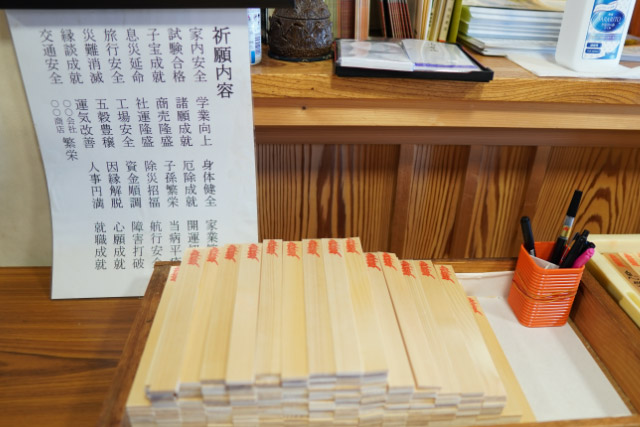 祈願内容
家内安全 学業向上 身体健全 家業
試験合格 諸願成就 厄除成就 開運
子宝成就 商売隆盛 子孫繁栄 当病平
息災延命 社運隆盛 除災招福 航行安全
旅行安全 工場安全 資金順調 障害打破
災難消滅 五穀豊穣 因縁解脱 心願成就
縁談成就 運気改善 人事円満 就職成就
交通安全 ○○会社 ○○商店 繁栄